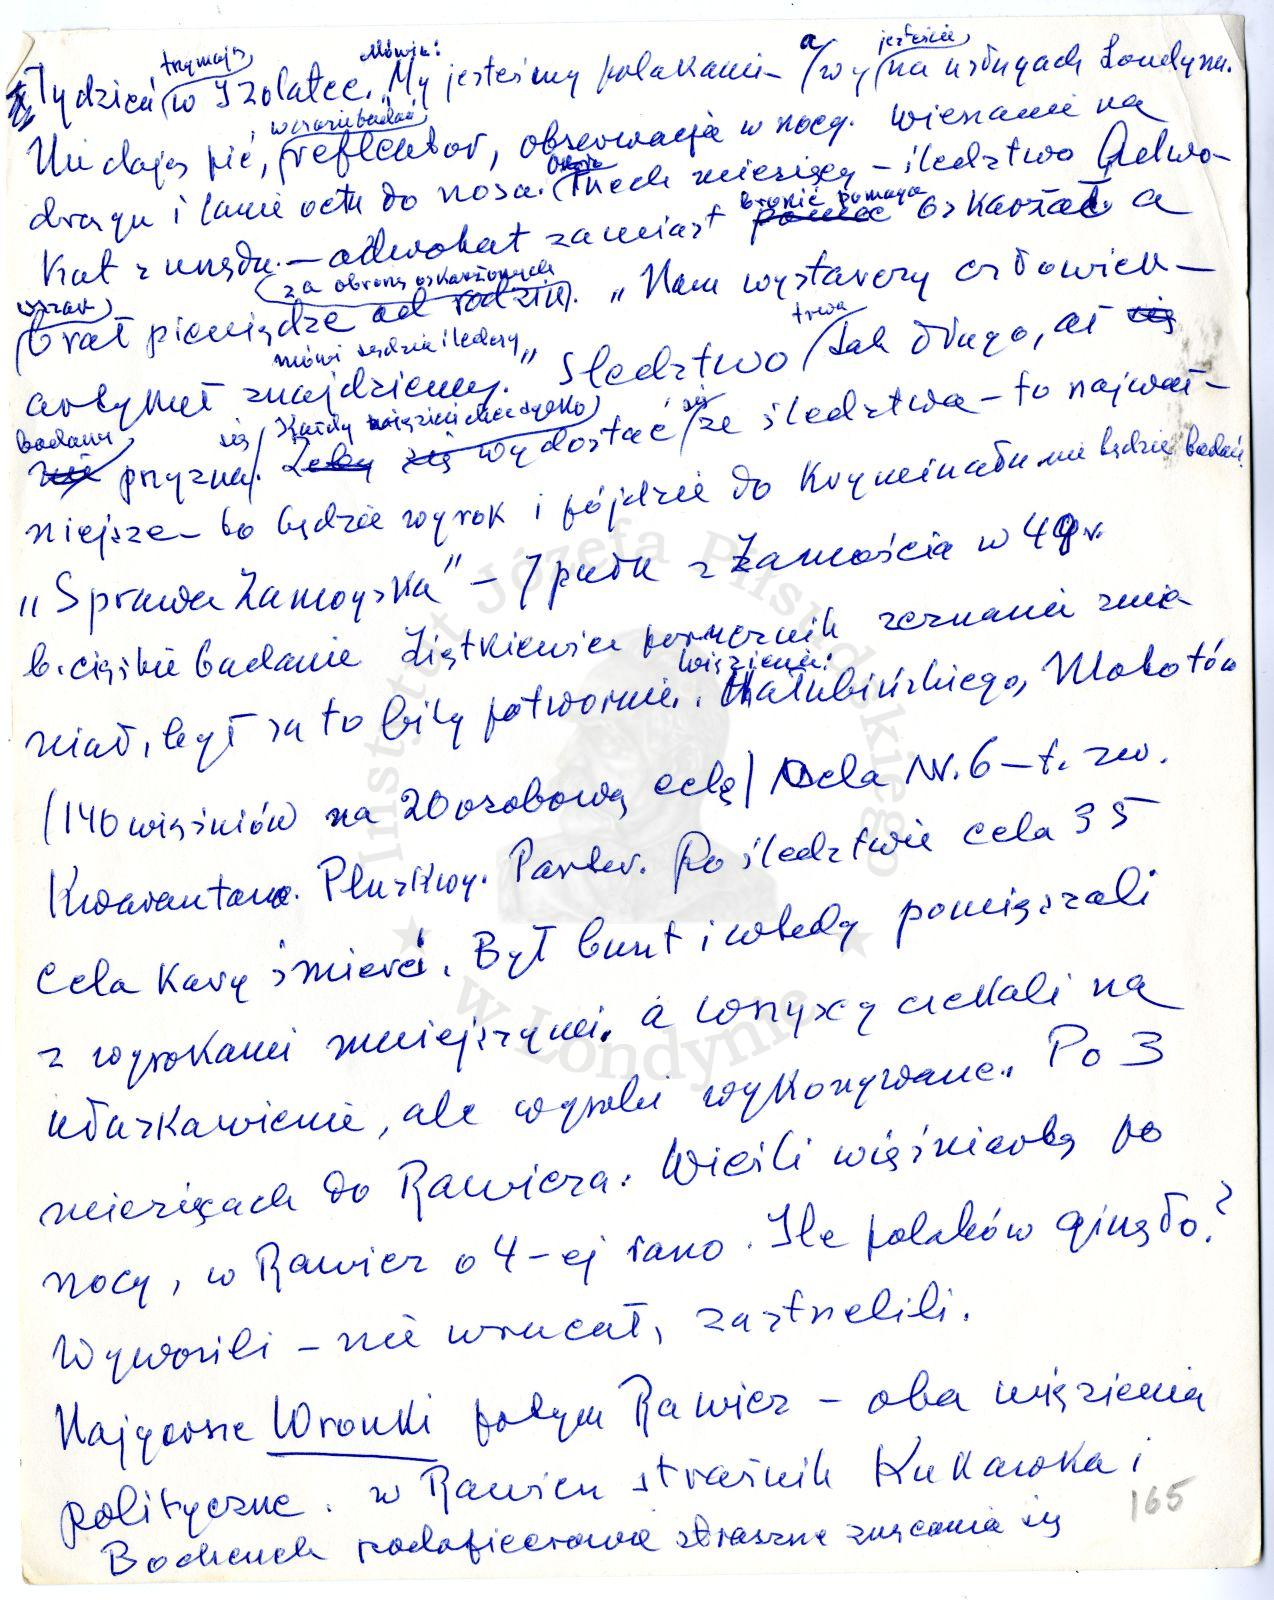 Tydzień trzymają w Izolatce. Mówią: My jesteśmy polakami – a wy jesteście na usługach Londynu.
Nie dają pić, w czasie badań reflektor, obserwacja w nocy. wieszanie na
drągu i lanie octu do nosa. Trzech miesięcy – śledztwo Adwo-
kat z urzędu. – adwokat zamiast bronić pomaga oskarżać a
wszak brał pieniądze za obronę oskarżonych od rodzin. "Nam wystarczy człowiek –
artykuł znajdziemy." mówi sędzia śledczy" Śledztwo trwa tak długo, aż się
badany nie przyzna się. Każdy więzień chce tylko Żeby się wydostać się ze śledztwa – to najważ-
niejsze – bo będzie wyrok i pójdzie do kryminału nie będzie badań
"Sprawa Zamoyska" – 7 pułk z Zamościa w 49 r.
b. ciężkie badanie porucznik zeznanie zmie
niał, był za to bity potwornie. Więzienie: Małubińskiego, Mokotów
(140 więźniów na 20 osobową celę) Cela Nr. 6 – t. zw.
Kwarantana. Pluskwy. Parter. Po śledztwie cela 35
Cela Kary śmierci. Był bunt i wtedy pomięszali
z wyrokami mniejszymi. a wszyscy czekali na
ułaskawienie, ale wyroki wykonywane. Po 3
miesiącach do Rawicza. Wieźli więźniarką po
nocy, w Rawicz o 4-ej rano. Ile polaków ginęło?
Wywozili – nie wracał, zastrzelili.
Najgorsze Wronki potym Rawicz – oba więzienia
polityczne. w Rawiczu strażnik Kukawka i
Bochenek podoficerowie straszne znęcania się
165
Instytut Józefa Piłsudskiego
w Londynie